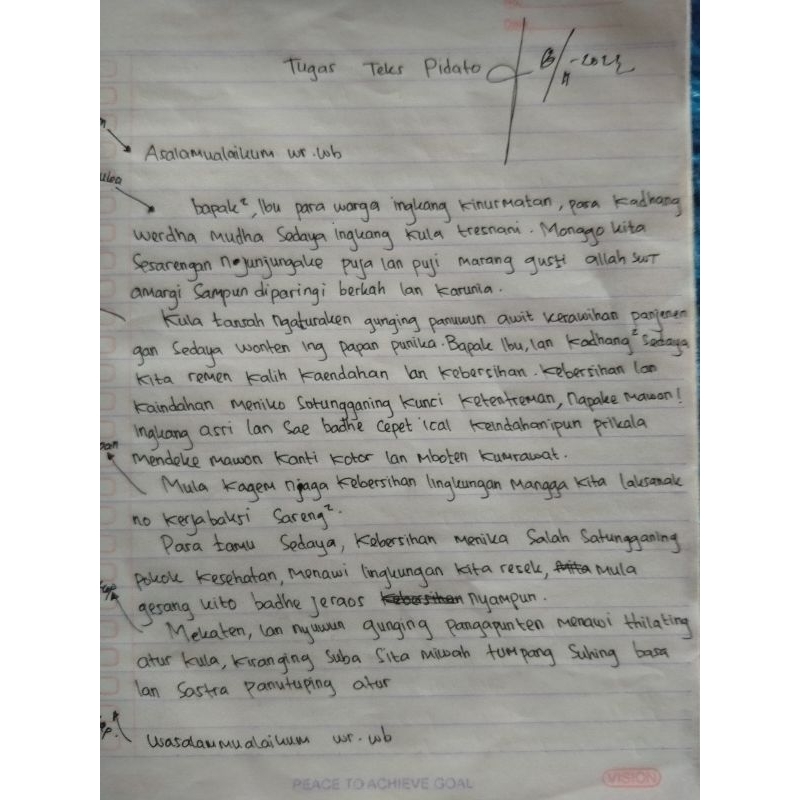 Tugas Teks Pidato
Asalamualaikum wr.wb
bapak², Ibu para warga ingkang kinurmatan, para kadhang
werdha mudha Sedaya ingkang kula tresnani. Monggo kita
Sesarengan njunjungake puja lan puji marang gusti allah SWT
amargi Sampun diparingi berkah lan karunia.
Kula tansah ngaturaken gunging panuwun awit kerawihan panjenen
gan Sedaya wonten ing papan punika. Bapak Ibu, lan kadhang² Sedaya
kita remen kalih kaendahan lan kebersihan. kebersihan lan
kaindahan meniko Sotungganing kunci ketentreman, Napake mawon!
Ingkang asri lan Sae badhe cepet ical keindahanipun prikala
mendeke mawon kanti kotor lan mboten kumrawat.
Mula kagem njaga kebersihan lingkungan mangga kita laksanak
no kerjabaksi Sareng².
Para tamu Sedaya, kebersihan menika Salah Satungganing
pokok kesehatan, menawi lingkungan kita resek, mula
gesang kito badhe jeraos nyampun.
Mekaten, lan nyuwun gunging pangapunten menawi thilating
atur kula, kiranging Suba Sita miwah tumpang Suhing basa
lan Sastra panutuping atur
Wasalammualaikum wr.wb
PEACE TO ACHIEVE GOAL
VISION